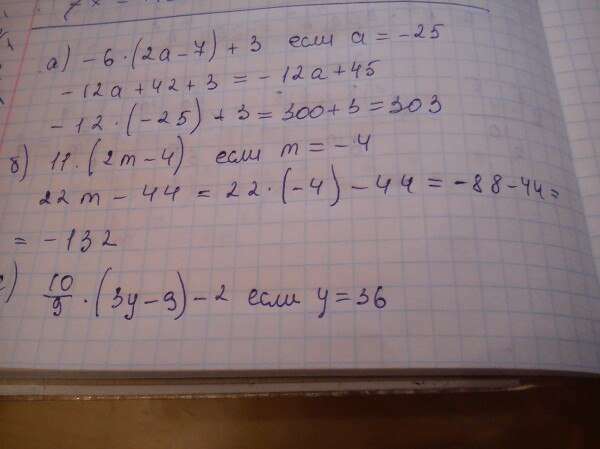 а) -6·(2a-7)+3 если a=-25
-12a+42+3=-12a+45
-12·(-25)+3=300+3=303
б) 11·(2m-4) если m=-4
22m-44=22·(-4)-44=-88-44=
=-132
с) 10/9·(3y-9)-2 если y=36